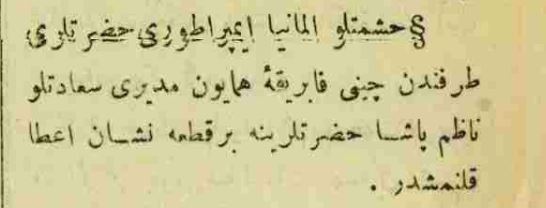 § حشمتلو المانیا ایمپراطوری حضرتلری
طرفندن چینی فابریقهٔ همایون مدیری سعادتلو
ناظم پاشا حضرتلرینه برقطعه نشان اعطا
قلنمشدر .